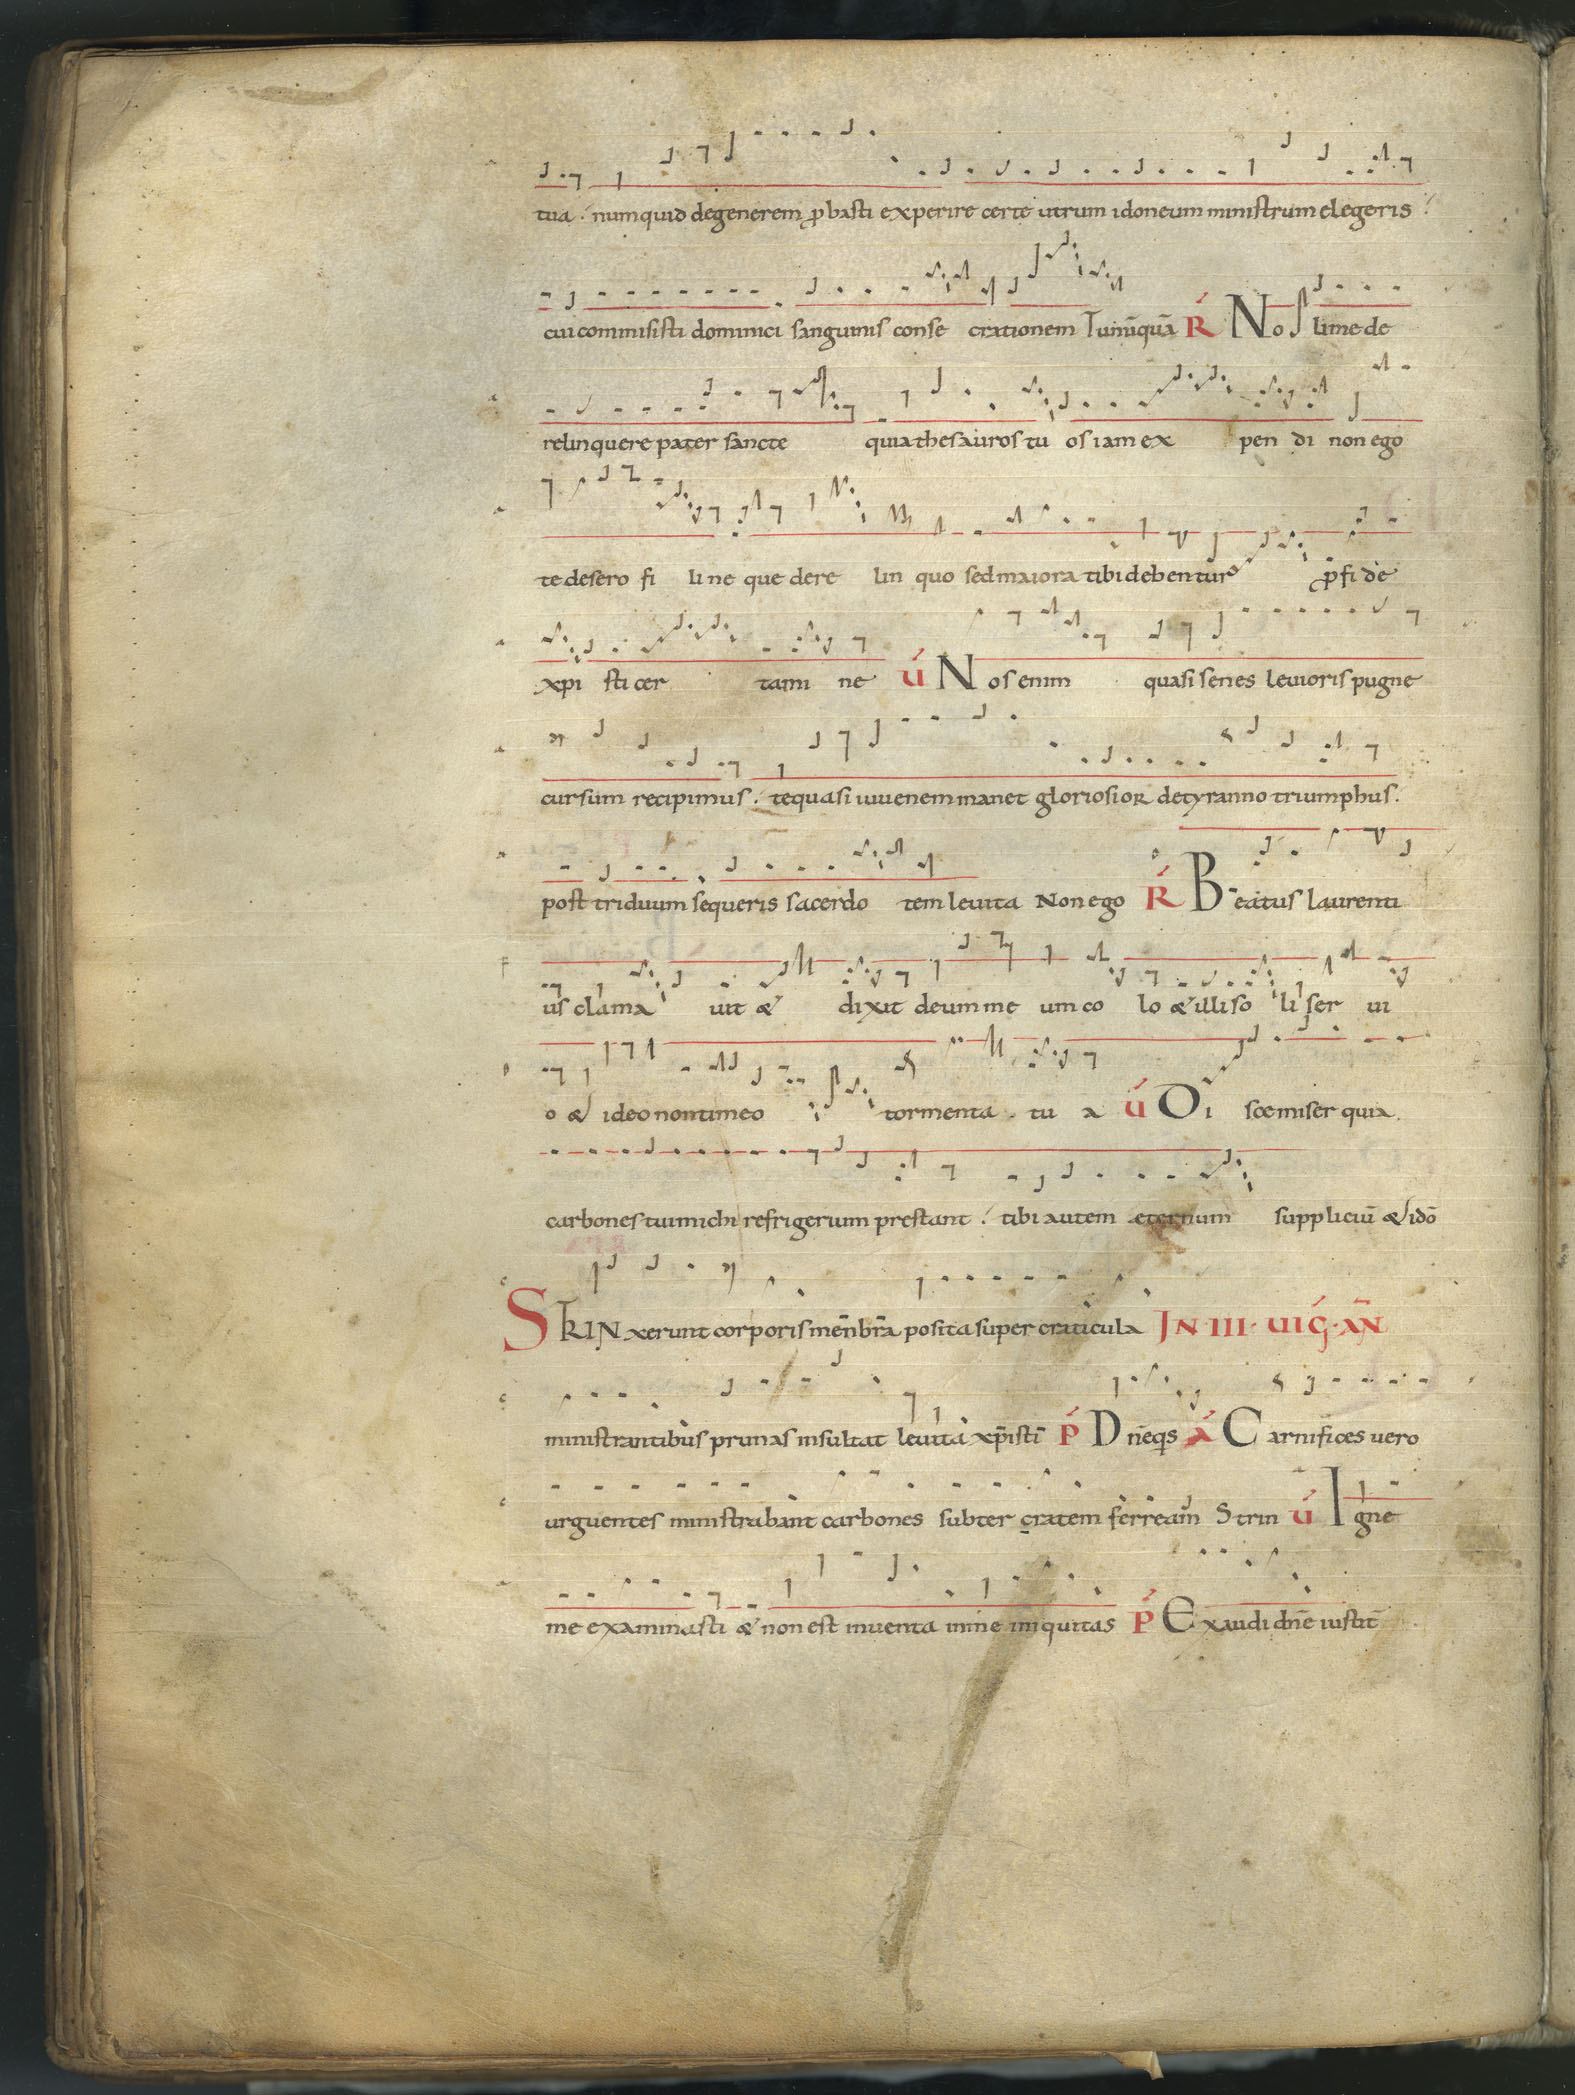 tua. numquid degenerem ꝓbasti experire certe utrum idoneum ministrum elegeris.
cui commisisti dominici sanguinis conse crationem Tuinūquā R No li me de
relinquere pater sancte quia thesauros tu os iam ex pen di non ego
te desero fi li ne que dere lin quo sed maiora tibi debentur ꝓ fi de
xpi sti cer tami ne V Nos enim quasi senes leuioris pugne
cursum recipimus. te quasi iuuenem manet gloriosior de tyranno triumphus.
post triduum sequeris sacerdo tem leuita Non ego R Beatus laurenti
us clama uit & dixit deum me um co lo & illi so li ser ui
o & ideo non timeo tormenta tu a V Di sce miser quia
carbones tui michi refrigerium prestant. tibi autem eternum suppliciū & idō
STRINxerunt corporis mēnbra posita super craticula IN III UIG AN
ministrantibus prunas insultat leuita xp̄isti P Dn̄eq̄s A Carnifices uero
urguentes ministrabant carbones subter cratem ferream Strin V Igne
me examinasti & non est inuenta in me iniquitas P Exaudi dn̄e iustit̄